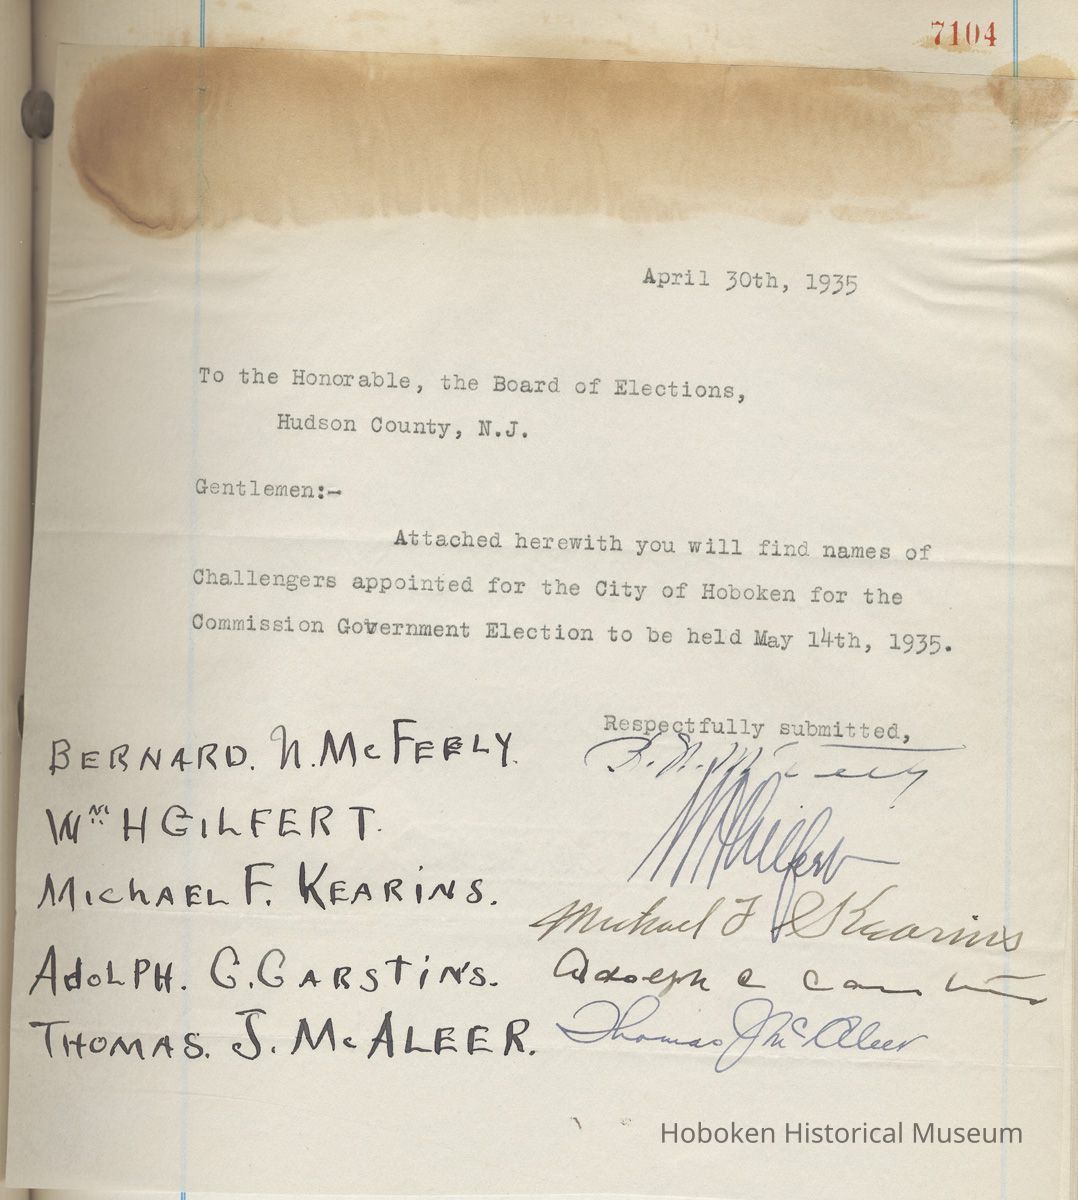 7104
April 30th, 1935
To the Honorable, the Board of Elections,
Hudson County, N.J.
Gentlemen:-
Attached herewith you will find names of
Challengers appointed for the City of Hoboken for the
Commission Government Election to be held May 14th, 1935.
Respectfully submitted,
BERNARD. N. McFEELY. B. N. McFeely
Wm H GILFERT. WHGilfert
MichAEL F. KEARiNS. Michael F Kearins
AdOLPH. C. CARSTiNS. Adolph C Carstins
THOMAS. J. McALEER. Thomas J McAleer
Hoboken Historical Museum